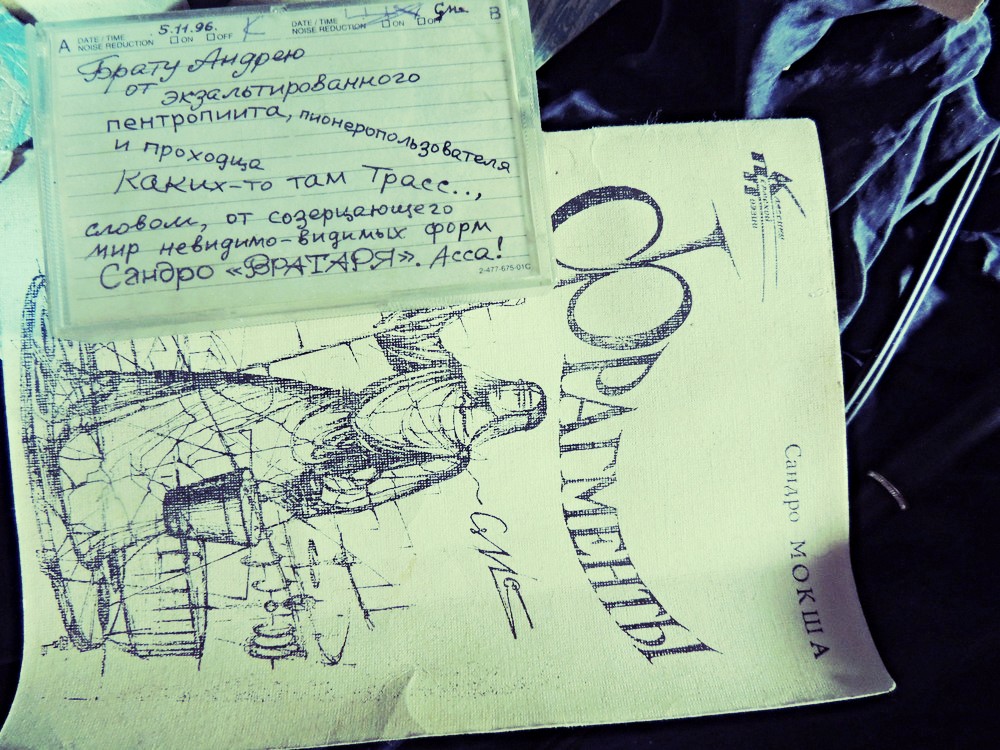 A DATE / TIME 5.11.96. DATE / TIME B
NOISE REDUCTION ☐ ON ☐ OFF NOISE REDUCTION ☐ ON ☐ OFF
Брату Андрею
от экзальтированного
пентропиита, пионеропользователя
и проходца
Каких-то там Трасс..,
словом, от созерцающего
мир невидимо-видимых форм
Сандро «ВРАТАРЯ». Асса!
2-477-675-01C
Сандро МОКША
ФРАГМЕНТЫ